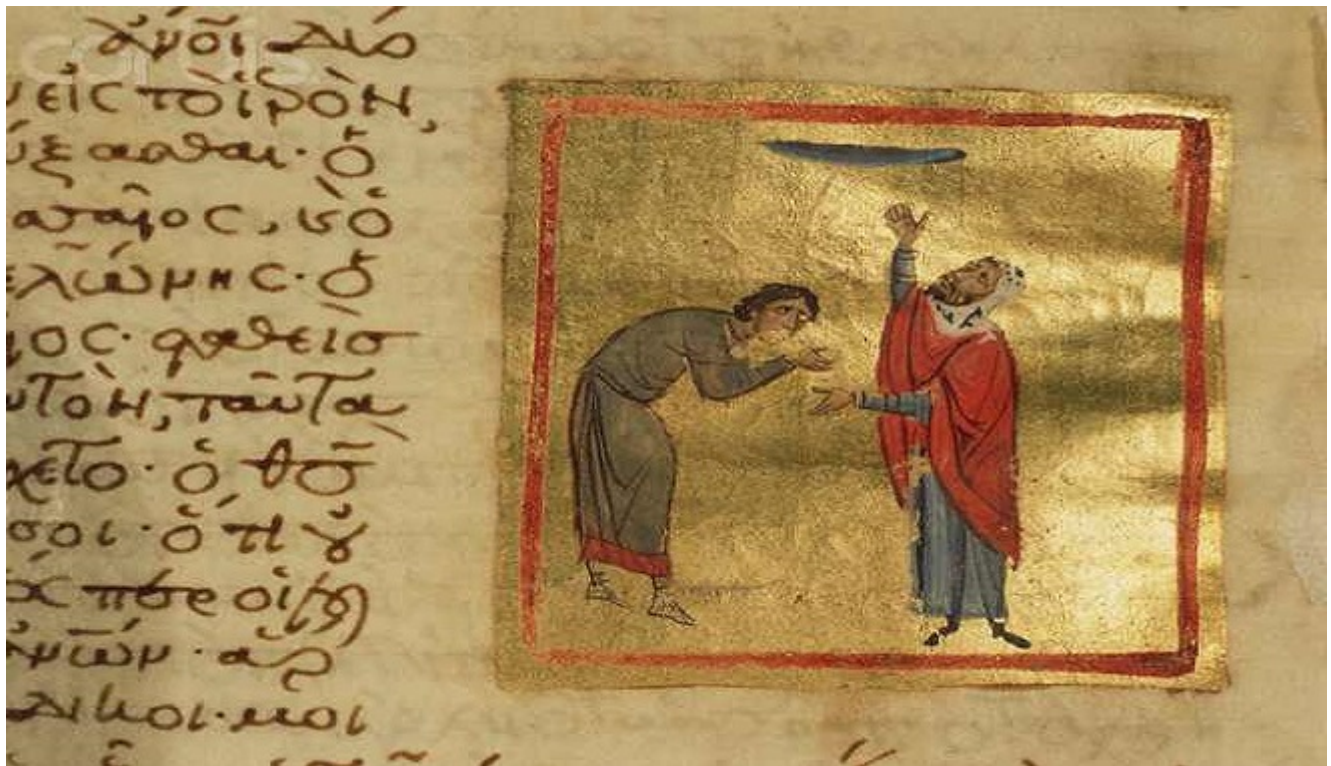 ἄνο̄ι δύο
εἰς τὸ ἱρὸν,
ύξασθαι· ὁ
σαῖος, κ ὁ
ελώνης· ὁ
ος· σταθεὶσ
υτὸν, ταῦτα
χετο· ὁ θ̄σ̄
σοι· ὅτι οὐ
περ οἱ
ἀν̄ων· ἅρ
δικοι· μοι